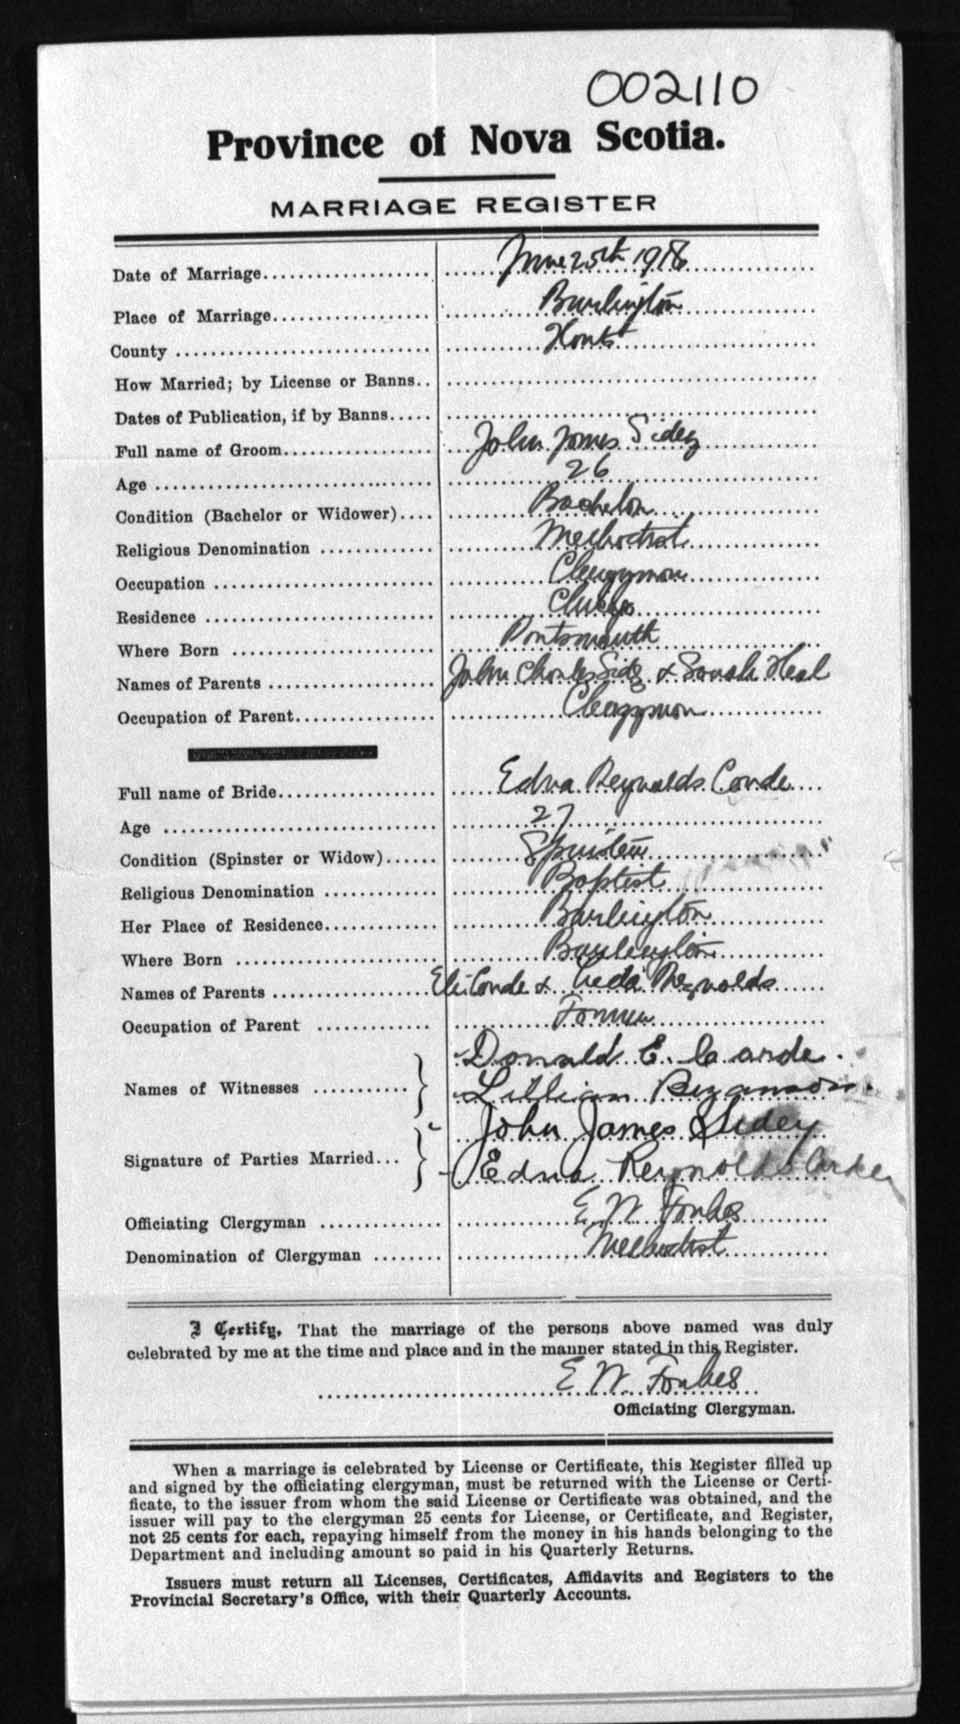 002110
Province of Nova Scotia.
MARRIAGE REGISTER
Date of Marriage June 25th 1918
Place of Marriage Burlington
County Hants
How Married; by License or Banns
Dates of Publication, if by Banns
Full name of Groom John James Sidey
Age 26
Condition (Bachelor or Widower) Bachelor
Religious Denomination Methodist
Occupation Clergyman
Residence
Where Born Portsmouth
Names of Parents John Charles Sidey & Sarah Heal
Occupation of Parent Clergyman
Full name of Bride Edna Reynolds Card
Age 27
Condition (Spinster or Widow) Spinster
Religious Denomination Baptist
Her Place of Residence Burlington
Where Born Burlington
Names of Parents Eli & Reynolds
Occupation of Parent Farmer
Names of Witnesses Donald E.
Lillian Bezanson
Signature of Parties Married John James Sidey
Edna Reynolds
Officiating Clergyman E W Forbes
Denomination of Clergyman Methodist
I Certify, That the marriage of the persons above named was duly
celebrated by me at the time and place and in the manner stated in this Register.
E W Forbes
Officiating Clergyman.
When a marriage is celebrated by License or Certificate, this Register filled up
and signed by the officiating clergyman, must be returned with the License or Certi-
ficate, to the issuer from whom the said License or Certificate was obtained, and the
issuer will pay to the clergyman 25 cents for License, or Certificate, and Register,
not 25 cents for each, repaying himself from the money in his hands belonging to the
Department and including amount so paid in his Quarterly Returns.
Issuers must return all Licenses, Certificates, Affidavits and Registers to the
Provincial Secretary's Office, with their Quarterly Accounts.